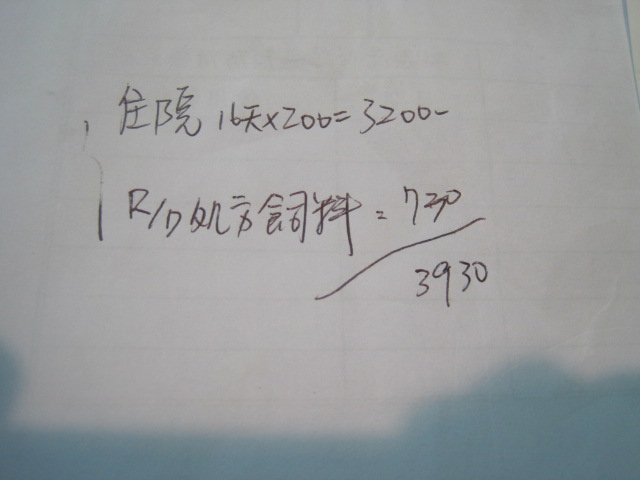 住院 16天×200=3200-
R/D处方飼料=730
3930